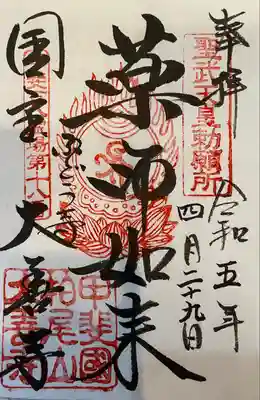 奉拝
令和五年
四月二十九日
聖武天皇勅願所
薬師如来
ぶどう寺
国宝 大善寺
甲斐國
柏尾山
大善寺